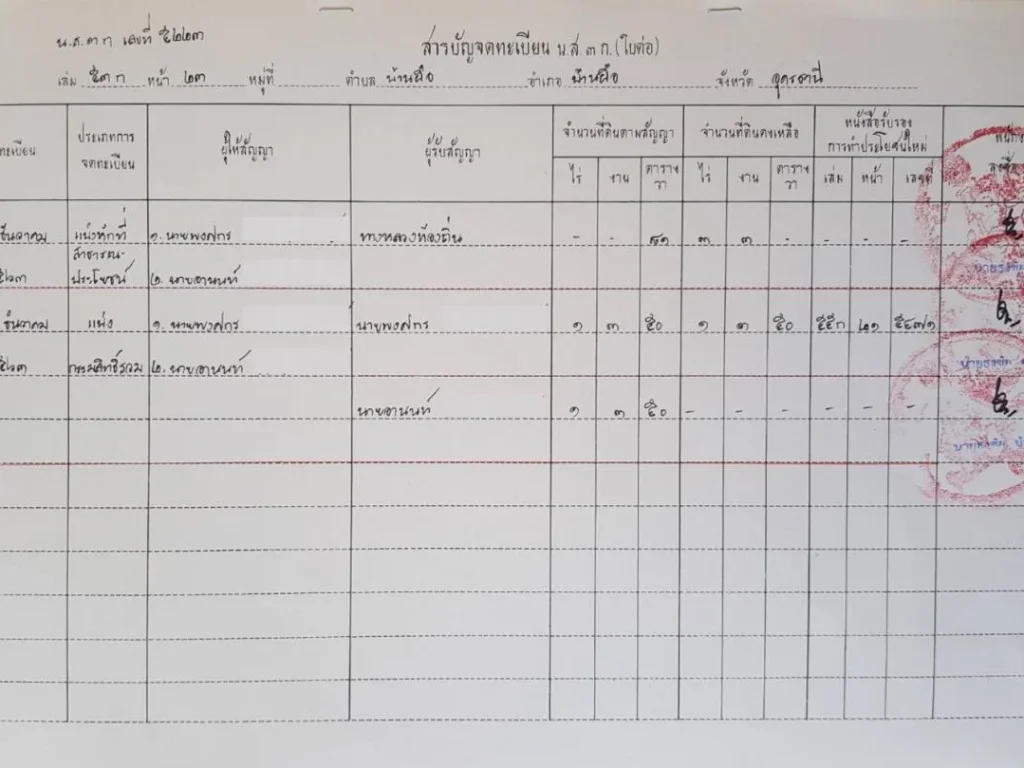 น.ส.๓ ก เลขที่ ๕๒๒๓
สารบัญจดทะเบียน น.ส.๓ ก.(ใบต่อ)
เล่ม ๕๓ ก หน้า ๒๓ หมู่ที่ ตำบล บ้านผือ อำเภอ บ้านผือ จังหวัด อุดรธานี
ทะเบียน ประเภทการ ผู้ให้สัญญา ผู้รับสัญญา จำนวนที่ดินตามสัญญา จำนวนที่ดินคงเหลือ หนังสือรับรอง
จดทะเบียน การทำประโยชน์ใหม่
ไร่ งาน ตาราง ไร่ งาน ตาราง เล่ม หน้า เลขที่
วา วา
ธันวาคม แบ่งหักที่ ๑. นายพงศกร ทางหลวงท้องถิ่น - - ๘๑ ๓ ๓ - - - -
สาธารณ-
ประโยชน์ ๒. นายอานนท์
ธันวาคม แบ่ง ๑. นายพงศกร นายพงศกร ๑ ๓ ๕๐ ๑ ๓ ๕๐ ๕๕ก ๒๑ ๕๔๗๑
กรรมสิทธิ์รวม ๒. นายอานนท์
นายอานนท์ ๑ ๓ ๕๐ - - - - - -